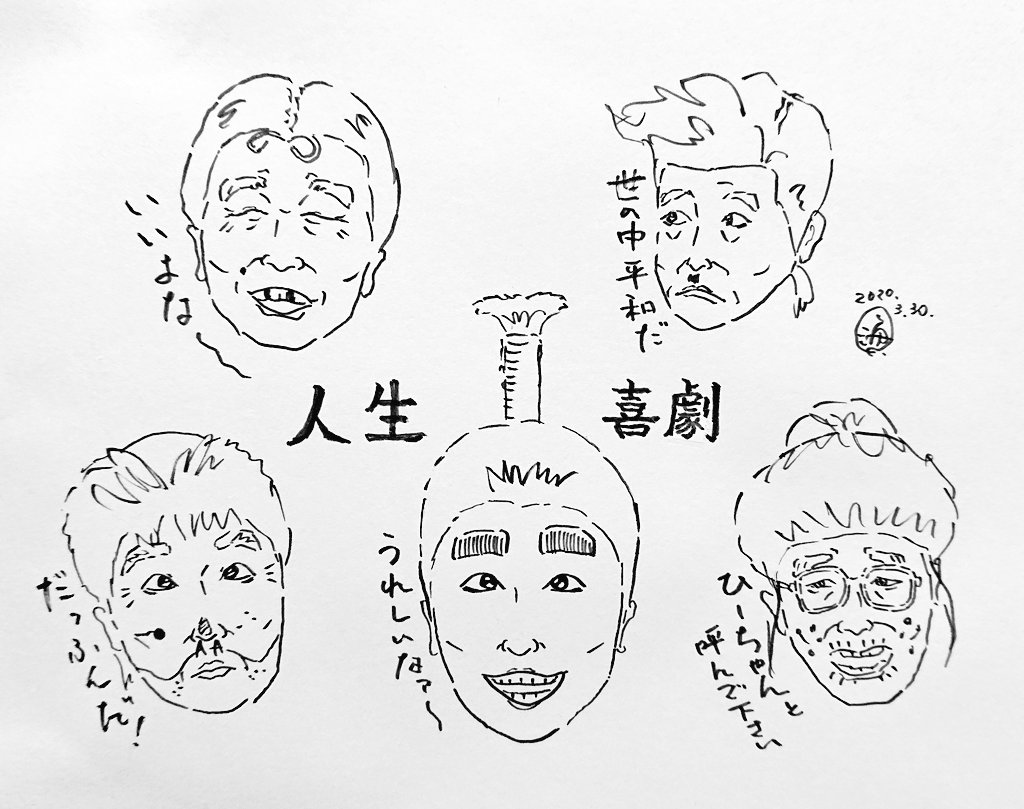 いよな〜
世の中平和だ
2020.
3.30.
人生 喜劇
だっふんだ!
うれしいな〜
ひーちゃんと
呼んで下さい